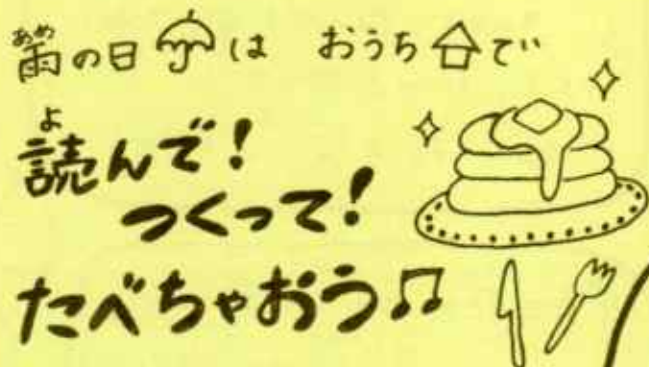 雨の日は おうちで
読んで!
つくって!
たべちゃおう♫